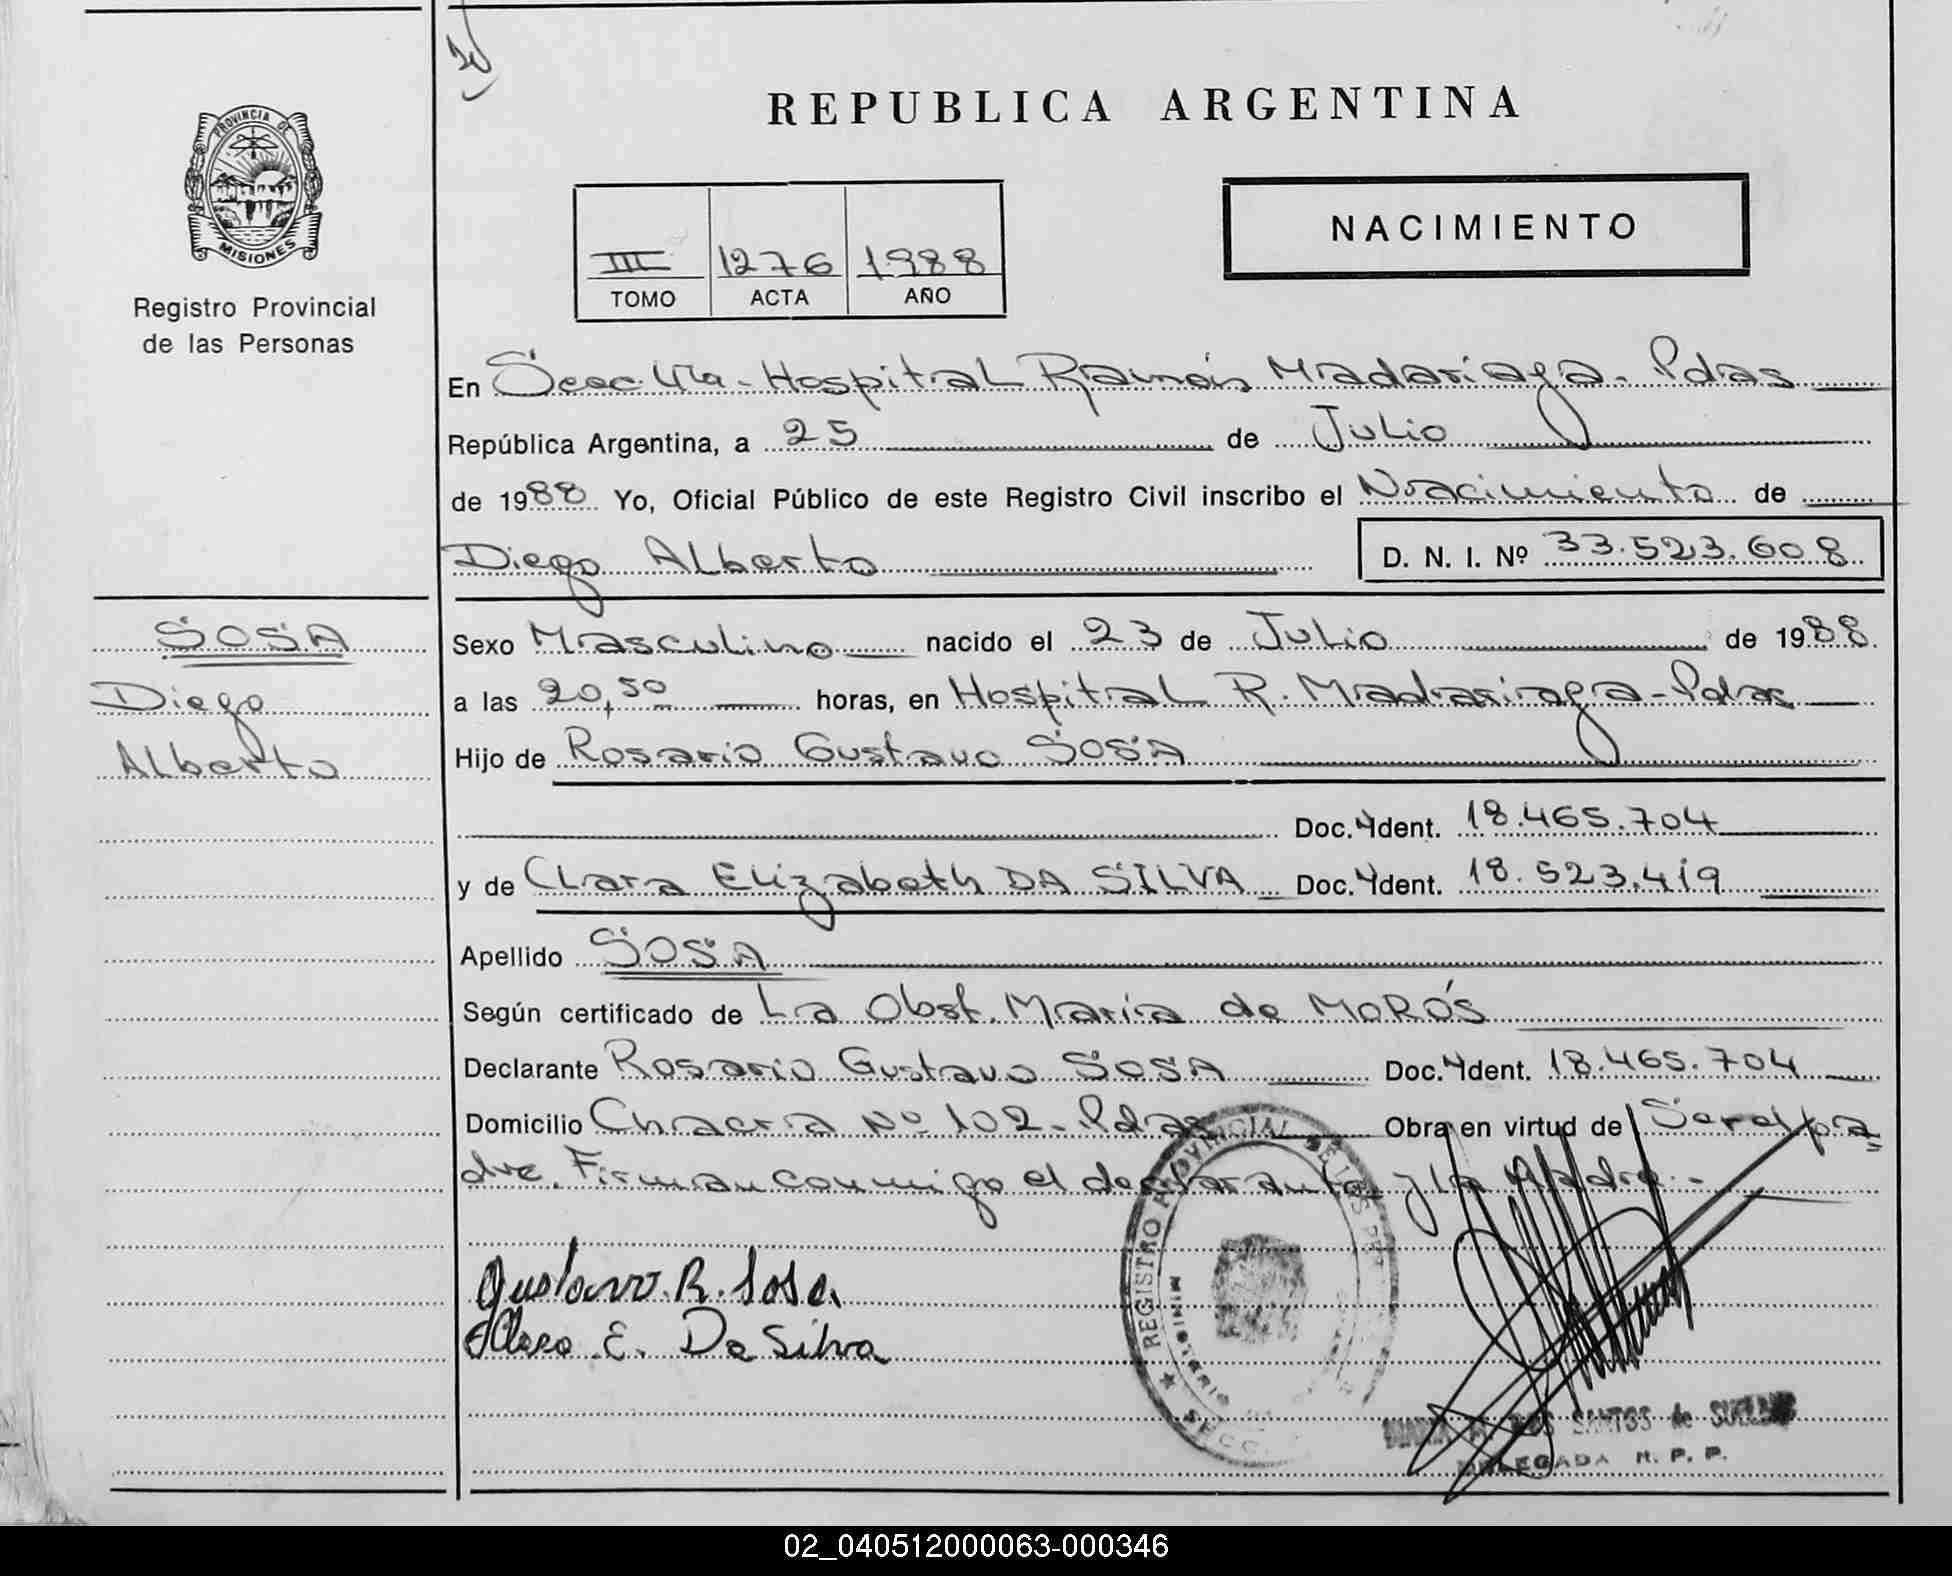 REPUBLICA ARGENTINA
PROVINCIA DE
MISIONES
Registro Provincial
de las Personas
NACIMIENTO
III 1276 1988
TOMO ACTA AÑO
En Secc. 4ta - Hospital Ramón Madariaga - Pdas
República Argentina, a 25 de Julio
de 1988 Yo, Oficial Público de este Registro Civil inscribo el Nacimiento de
Diego Alberto D. N. I. Nº 33.523.608
SOSA
Diego
Alberto
Sexo Masculino nacido el 23 de Julio de 1988.
a las 20,50 horas, en Hospital R. Madariaga - Pdas
Hijo de Rosario Gustavo SOSA
Doc. Ident. 18.465.704
y de Clara Elizabeth DA SILVA Doc. Ident. 18.523.419
Apellido SOSA
Según certificado de La Obst. María de MORÓS
Declarante Rosario Gustavo SOSA Doc. Ident. 18.465.704
Domicilio Chacra Nº 102 - Pdas Obra en virtud de Ser el pa=
dre. Firman conmigo el declarante y la Madre. -
Gustavo. R. Sosa.
Clara E. Da Silva
REGISTRO PROVINCIAL DE LAS PER
MINISTERIO
SECC.
DOS SANTOS de
DELEGADA R. P. P.
02_040512000063-000346